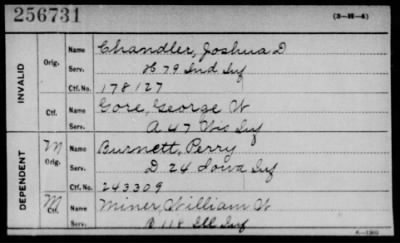 256731
(3-H-4)
INVALID
Orig. Name Chandler, Joshua D
Serv. H 79 Ind Inf
Ctf. No. 178127
Ctf. Name Gore, George W
Serv. A 47 Wis Inf
DEPENDENT
M Orig. Name Burnett, Perry
Serv. D 24 Iowa Inf
Ctf. No. 243309
M Ctf. Name Miner, William W
Serv. 118 Ill Inf